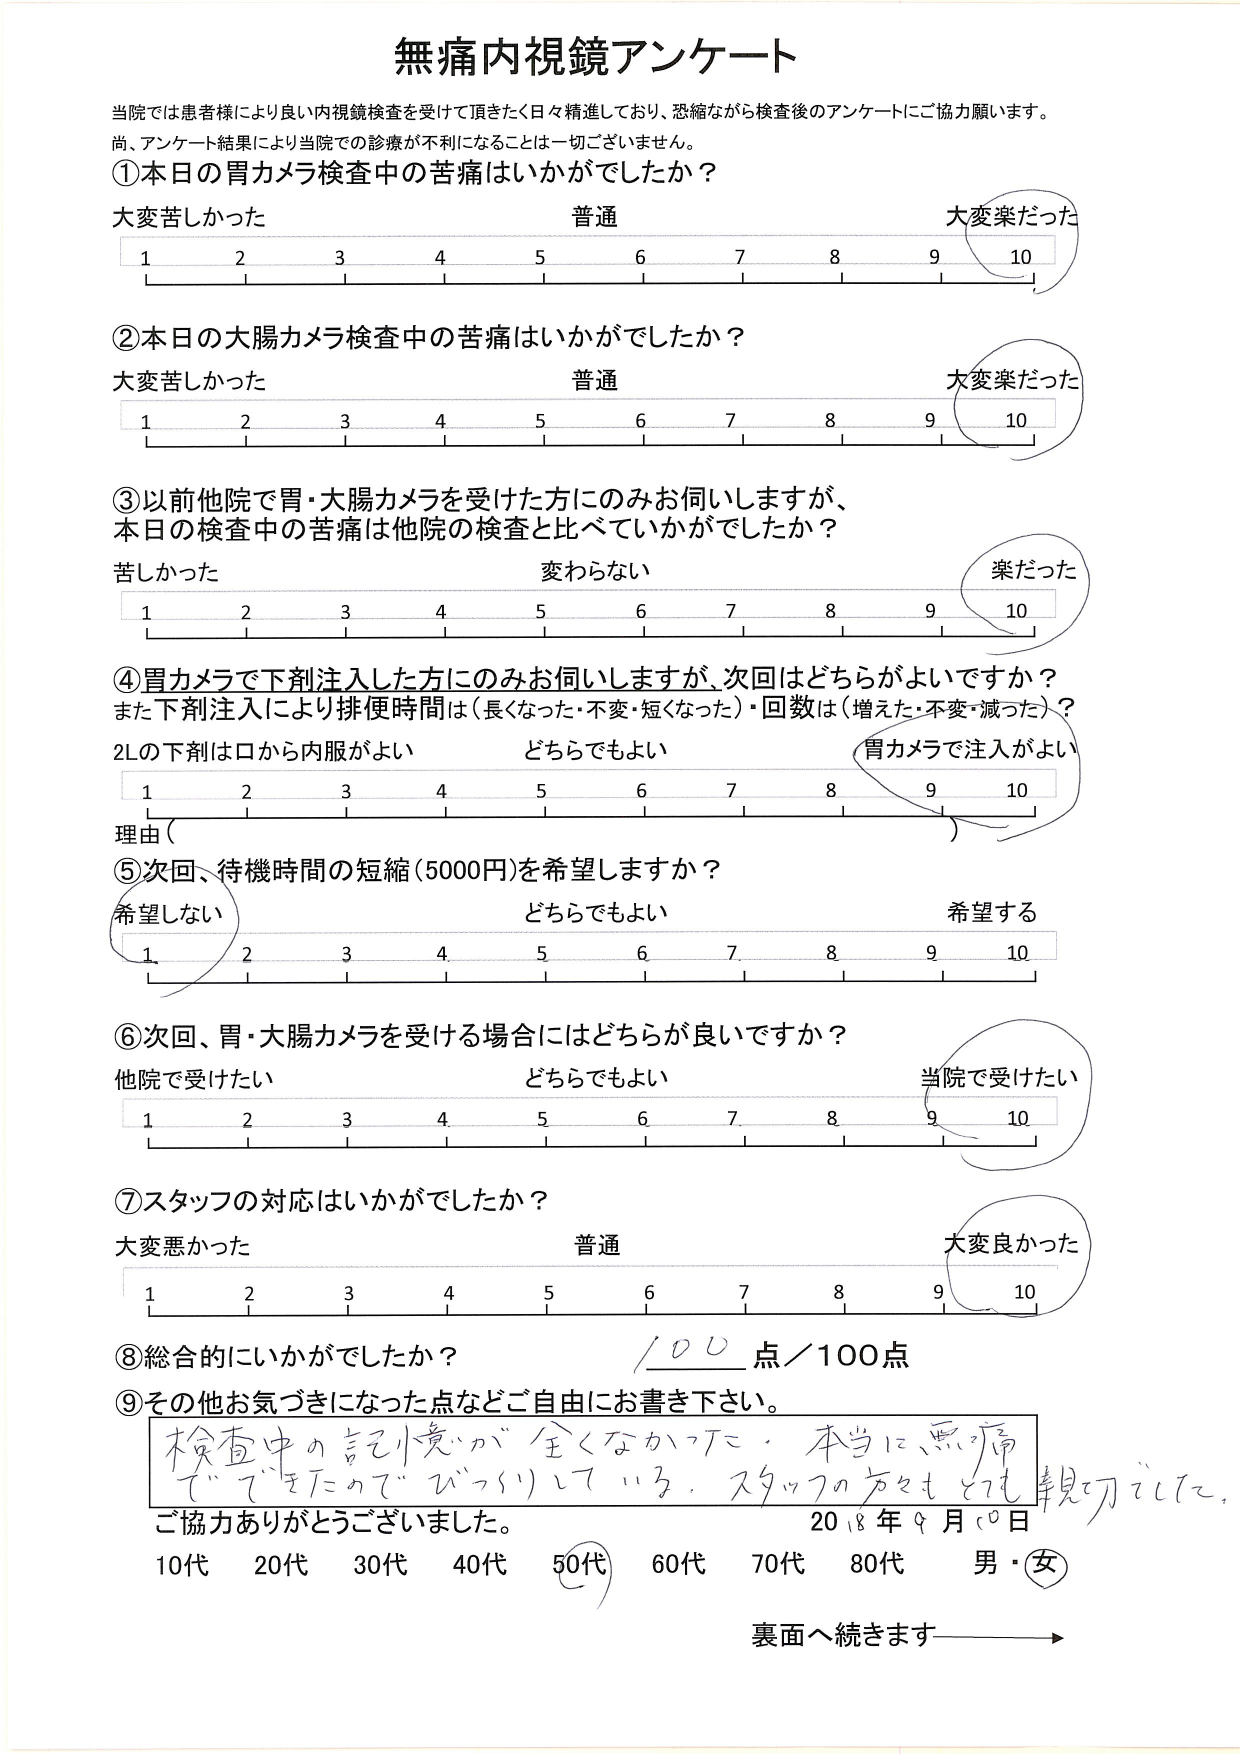 無痛内視鏡アンケート
当院では患者様により良い内視鏡検査を受けて頂きたく日々精進しており、恐縮ながら検査後のアンケートにご協力願います。
尚、アンケート結果により当院での診療が不利になることは一切ございません。
①本日の胃カメラ検査中の苦痛はいかがでしたか？
大変苦しかった 普通 大変楽だった
1 2 3 4 5 6 7 8 9 10
②本日の大腸カメラ検査中の苦痛はいかがでしたか？
大変苦しかった 普通 大変楽だった
1 2 3 4 5 6 7 8 9 10
③以前他院で胃・大腸カメラを受けた方にのみお伺いしますが、
本日の検査中の苦痛は他院の検査と比べていかがでしたか？
苦しかった 変わらない 楽だった
1 2 3 4 5 6 7 8 9 10
④胃カメラで下剤注入した方にのみお伺いしますが、次回はどちらがよいですか？
また下剤注入により排便時間は（長くなった・不変・短くなった）・回数は（増えた・不変・減った）？
2Lの下剤は口から内服がよい どちらでもよい 胃カメラで注入がよい
1 2 3 4 5 6 7 8 9 10
理由（ ）
⑤次回、待機時間の短縮（5000円）を希望しますか？
希望しない どちらでもよい 希望する
1 2 3 4 5 6 7 8 9 10
⑥次回、胃・大腸カメラを受ける場合にはどちらが良いですか？
他院で受けたい どちらでもよい 当院で受けたい
1 2 3 4 5 6 7 8 9 10
⑦スタッフの対応はいかがでしたか？
大変悪かった 普通 大変良かった
1 2 3 4 5 6 7 8 9 10
⑧総合的にいかがでしたか？ 100 点／100点
⑨その他お気づきになった点などご自由にお書き下さい。
検査中の記憶が全くなかった. 本当に悪痛
でできたのでびっくりしている. スタッフの方々もとても親切でした.
ご協力ありがとうございました。 2018年9月10日
10代 20代 30代 40代 50代 60代 70代 80代 男・女
裏面へ続きます